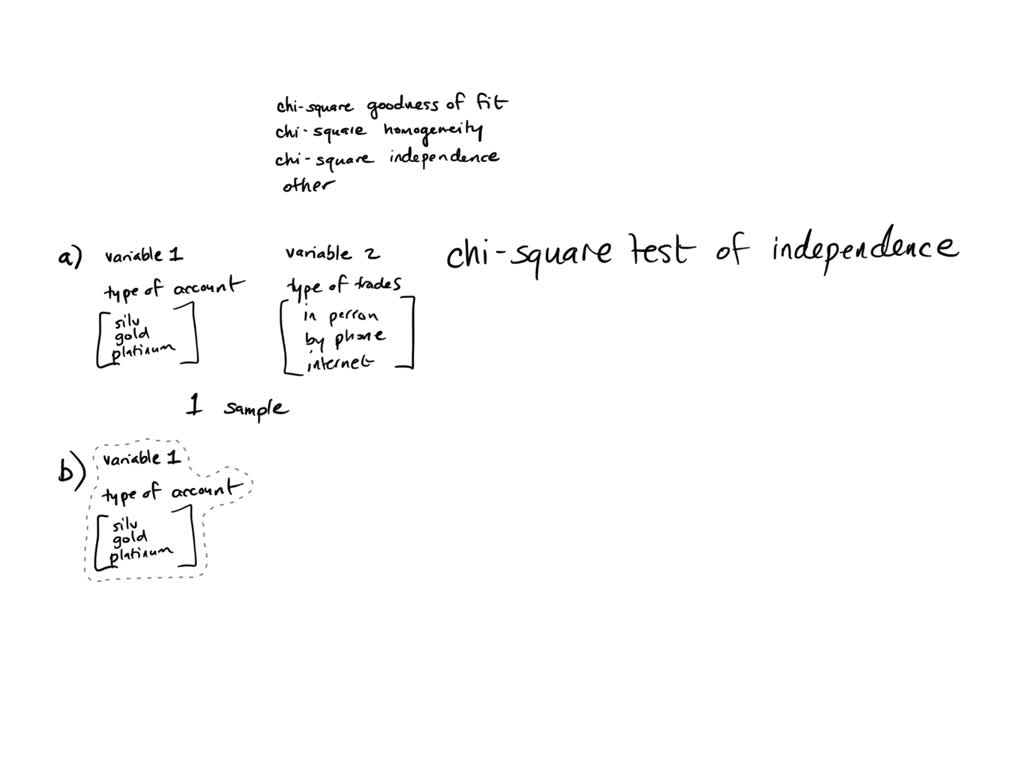 chi-square goodness of fit
chi-square homogeneity
chi-square independence
other
a) variable 1 variable 2 chi-square test of independence
type of account type of trades
silv in person
gold by phone
platinum internet
1 sample
b) variable 1
type of account
silv
gold
platinum